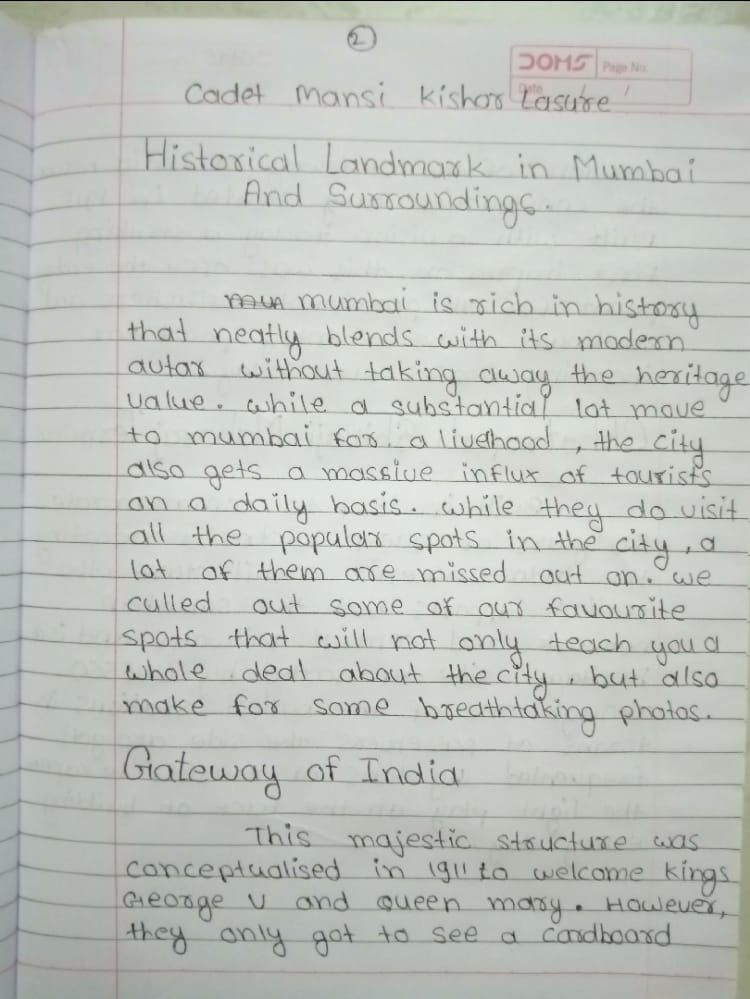 2
DOMS Page No.
Date / /
Cadet Mansi Kishor Lasure
Historical Landmark in Mumbai
And Surroundings.
mumbai is rich in history
that neatly blends with its modern
autar without taking away the heritage
value. while a substantial lot move
to mumbai for a livelhood, the city
also gets a massive influx of tourists
on a daily basis. while they do visit
all the popular spots in the city, a
lot of them are missed out on. we
culled out some of our favourite
spots that will not only teach you a
whole deal about the city, but also
make for some breathtaking photos.
Gateway of India
This majestic structure was
conceptualised in 1911 to welcome kings
George V and queen mary. However,
they only got to see a cardboard